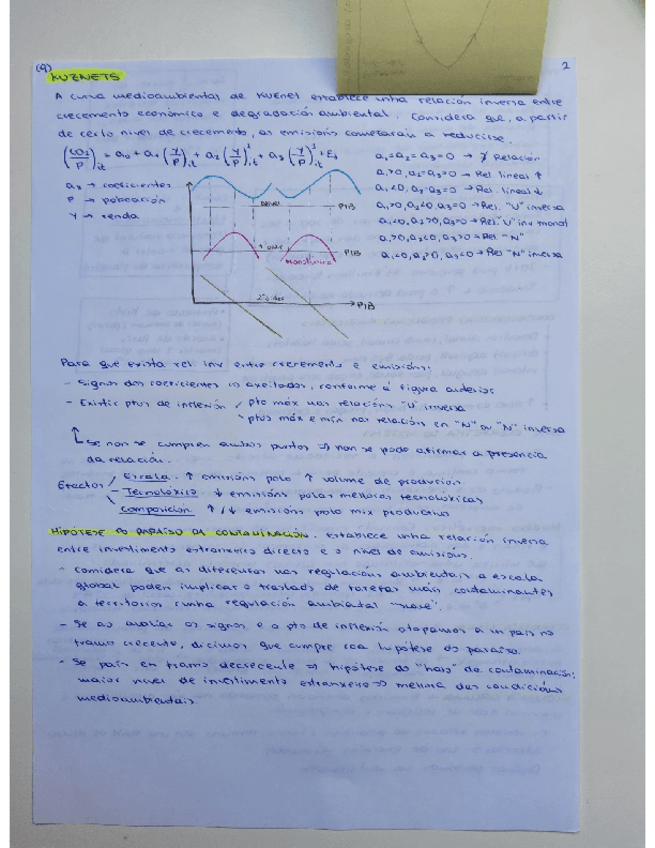 (9)
2
KUZNETS
A curva medioambiental de Kuznet establece unha relación inversa entre
crecemento económico e degradación ambiental. Considera que, a partir
de certo nivel de crecemento, as emisións comezarán a reducirse.
(CO2/P)i,t = a0 + a1 (Y/P)i,t + a2 (Y/P)²i,t + a3 (Y/P)³i,t + Et
ax → coeficientes
P → poboación
Y → renda
a1=a2=a3=0 → ∄ Relación
a1>0, a2=a3=0 → Rel. lineal ↑
a1<0, a2=a3=0 → Rel. lineal ↓
a1>0, a2<0, a3=0 → Rel. "U" inversa
a1<0, a2>0, a3=0 → Rel. "U"
a1>0, a2<0, a3>0 → Rel. "N"
a1<0, a2>0, a3<0 → Rel. "N" inversa
PIB
PIB
PIB
Para que exista rel. inv entre crecemento e emisións:
- Signos dos coeficientes os axeitados, conforme á figura anterior
- Existir ptos de inflexión / pto máx nas relacións "U" inversa
ptos máx e mín nas relacións en "N" ou "N" inversa
Se non se cumpren ambos puntos ⇒ non se pode afirmar a presencia
da relación.
Efectos
Escala. ↑ emisións polo ↑ volume de produción
Tecnolóxico ↓ emisións polas melloras tecnolóxicas
Composición ↑/↓ emisións polo mix productivo
HIPÓTESE DO PARAÍSO DA CONTAMINACIÓN. Establece unha relación inversa
entre investimento estranxeiro directo e o nivel de emisións.
- Considera que as diferenzas nas regulacións ambientais a escala
global poden implicar o traslado de tarefas máis contaminantes
a territorios cunha regulación ambiental "laxe".
- Se ao analizar os signos e o pto de inflexión atopamos a un país no
tramo crecente, dicimos que cumpre coa hipótese do paraíso.
- Se país en tramo decrecente ⇒ hipótese do "halo" da contaminación:
maior nivel de investimento estranxeiro ⇒ mellora das condicións
medioambientais.